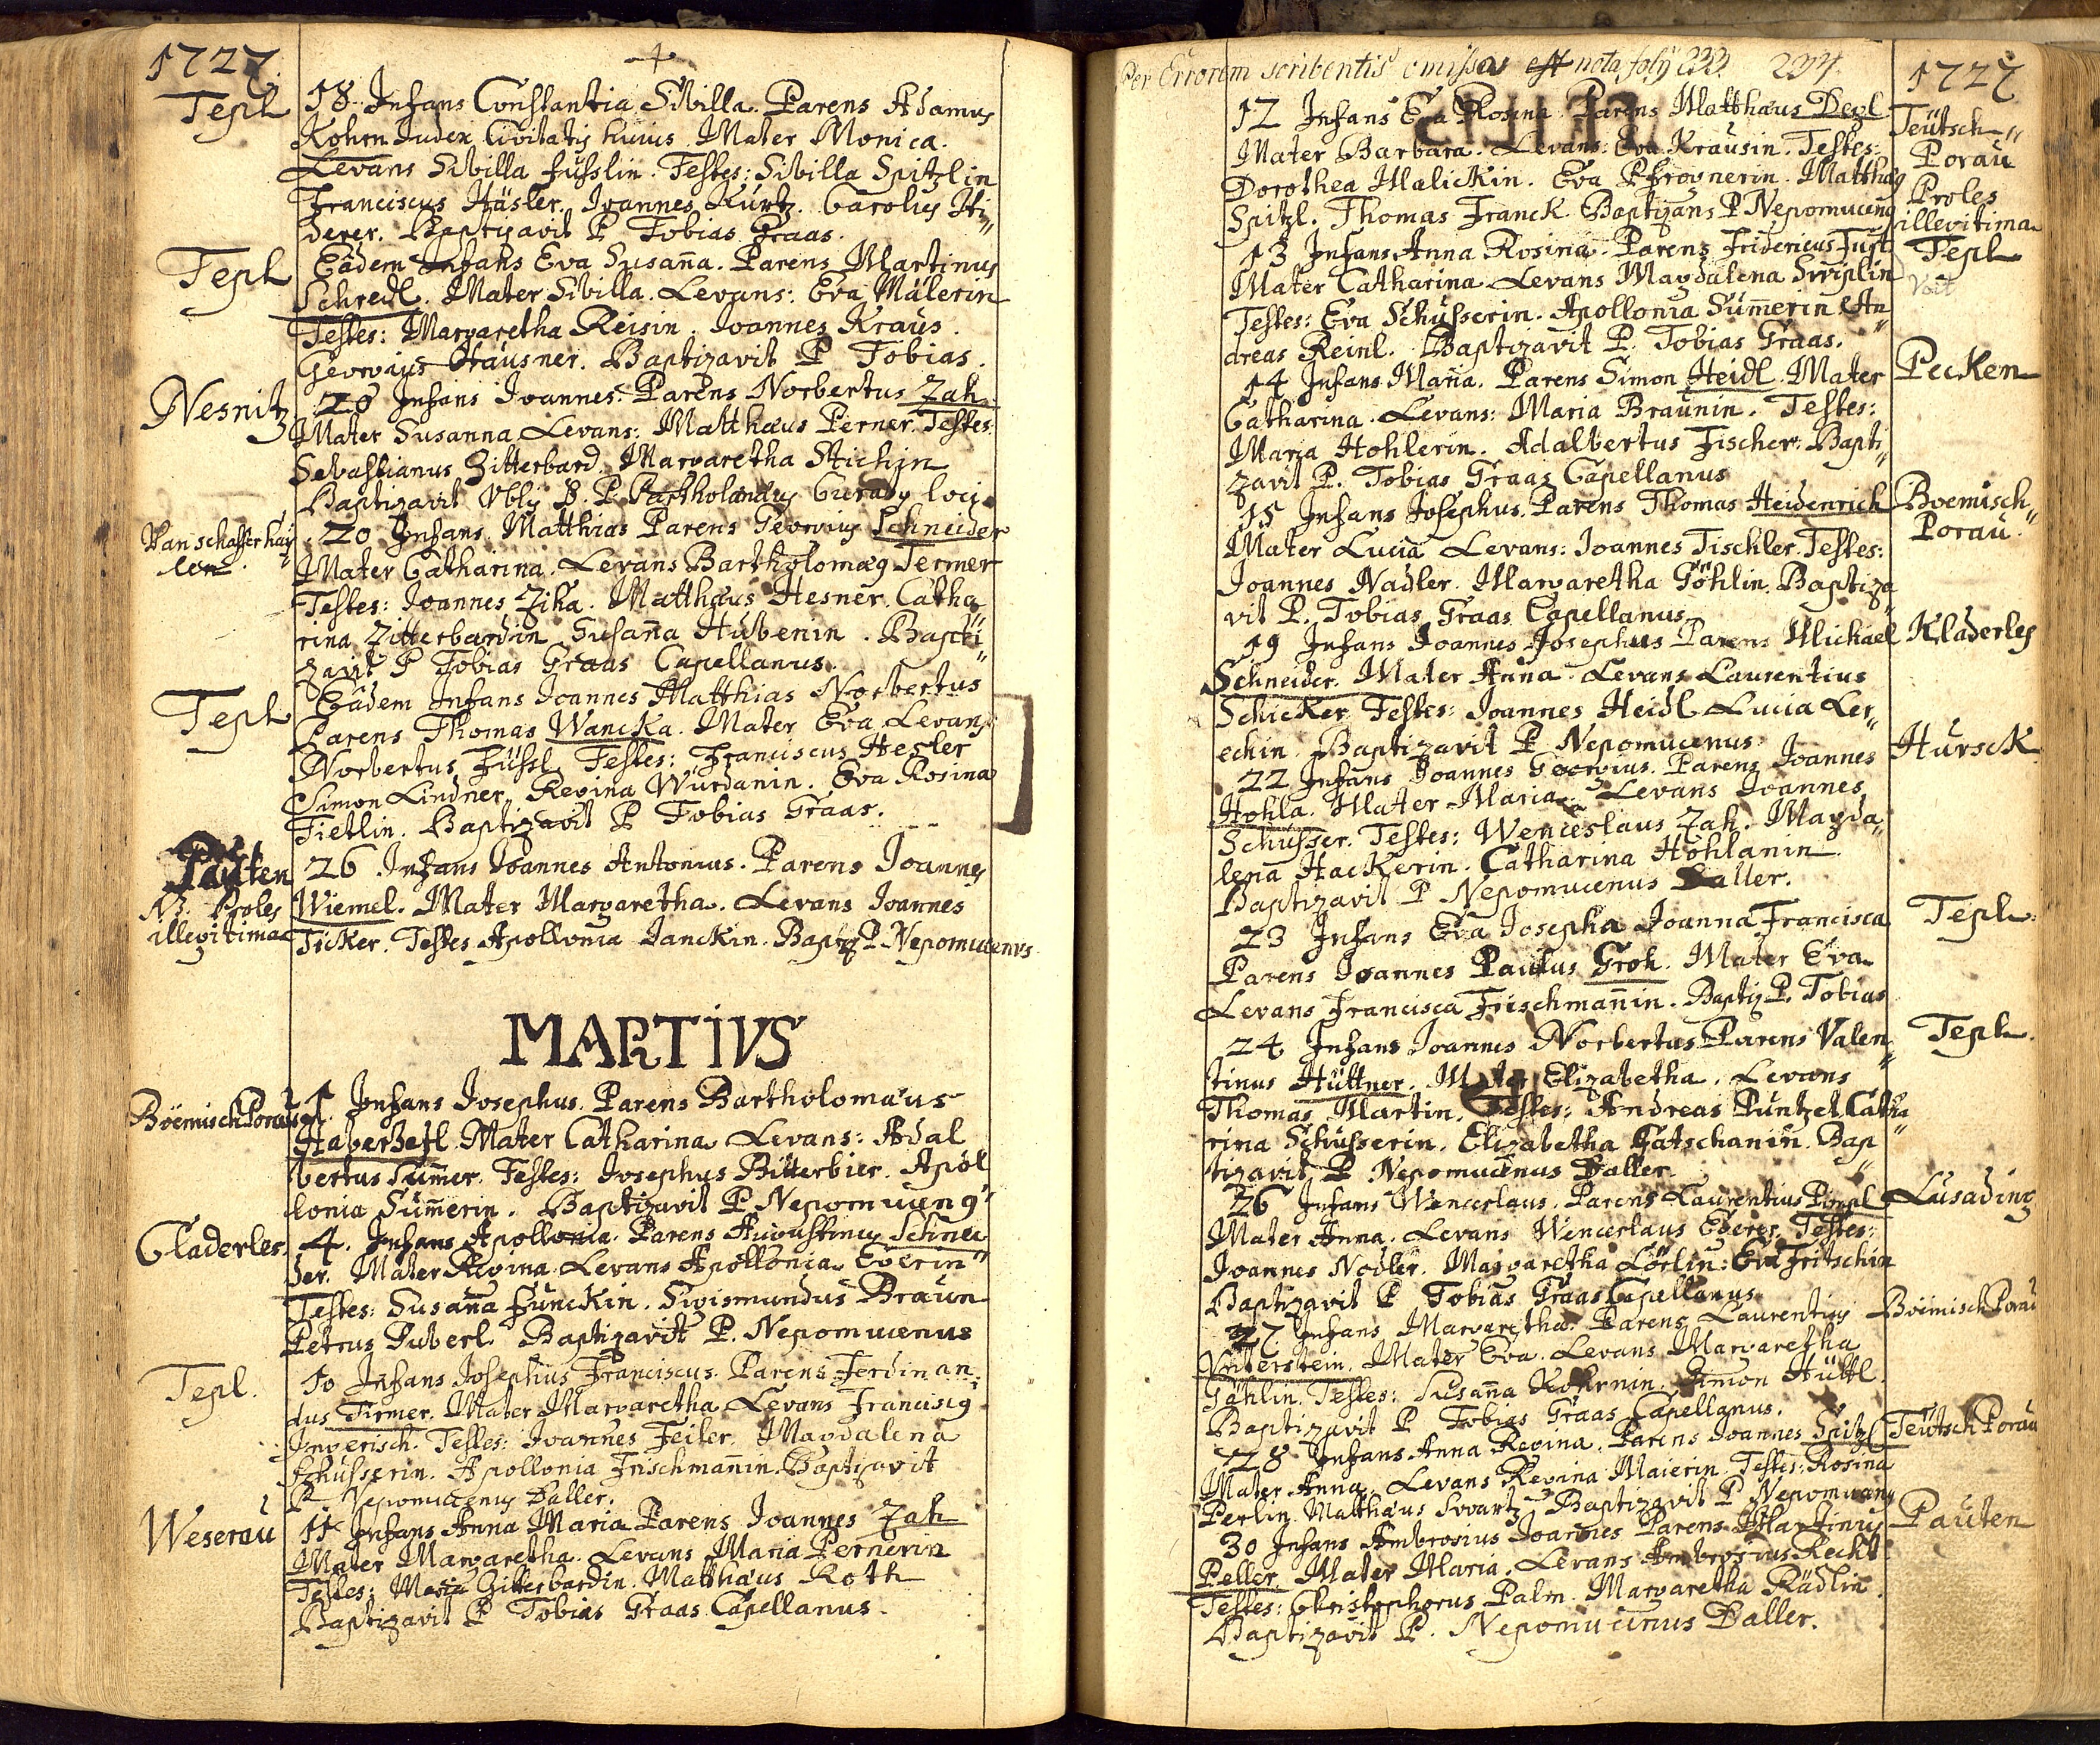 1727.
Tepl
18. Infans Constantia Sibilla. Parens Adamus
Kohrn Iudex Civitatis huius. Mater Monica.
Levans Sibilla Füsslin. Testes: Sibilla Spitzlin
Franciscus Häsler. Ioannes Kürtz. Carolus
derer. Baptizavit P Tobias Graas.
Tepl
Eâdem Infans Eva Susan̄a. Parens Martinus
Schredl. Mater Sibilla. Levans: Eva Mälerin
Testes: Margaretha Reisin. Ioannes Kraus.
Georgius Hausner. Baptizavit P Tobias.
Nesnitz
20 Infans Ioannes. Parens Norbertus Zah.
Mater Susanna Levans: Matthaeus Perner. Testes:
Sebastianus Zitterbard. Margaretha Stichin
Baptizavit P. Curatus loci.
20 Infans Matthias Parens Georgius Schneider
Mater Catharina. Levans Bartholomaeus Termer
Testes: Ioannes Zika. Matthäus Hesner. Catha
rina Zitterbardin Susan̄a Hübenin. Bapti"
zavit P Tobias Graas Capellanus.
Tepl
Eâdem Infans Ioannes Matthias Norbertus
Parens Thomas Wancka. Mater Eva Levans
Norbertus Füssl Testes: Franciscus Hesler
Simon Lindner Regina Würdanin. Eva Rosina
Fietlin. Baptizavit P Tobias Graas.
Pauten
NB. Proles
illegitima
26 Infans Ioannes Antonius. Parens Ioannes
Wiemel. Mater Margaretha. Levans Ioannes
Ticker. Testes Apollonia Ianckin. Baptiz P. Nepomucenus
MARTIVS
Böemisch Porau
1. Infans Iosephus. Parens Bartholomäus
Haberzetl. Mater Catharina Levans: Adal
bertus Sum̄er. Testes: Iosephus Bitterbier. Apol
lonia Süm̄erin. Baptizavit P. Nepomucenus
Claderles.
4. Infans Apollonia. Parens Augustinus Schnei
der. Mater Regina. Levans Apollonia Eberin
Testes: Susan̄a Funckin. Sigismundus Braun
Petrus Puberl. Baptizavit P. Nepomucenus
Tepl.
10 Infans Iosephus Franciscus. Parens Ferdinan
dus Tirmer. Mater Margaretha Levans Franciscus
Ingerisch. Testes: Ioannes Feiler. Magdalena
Schusserin. Apollonia Frischman̄in. Baptizavit
P Nepomucenus Daller.
Weserau
11 Infans Anna Maria Parens Ioannes Zah
Mater Margaretha. Levans Maria Pernerin
Testes: Maria Zitterbardin. Matthäus Roth
Baptizavit P Tobias Graas Capellanus.
Per Errorem scribentis omissa est nota folÿ 233. 234.
1727
12 Infans Eva Rosina. Parens Matthäus Deyl
Mater Barbara. Levans: Eva Krausin. Testes:
Dorothea Malickin. Eva Pfrognerin. Matthaeus
Spitzl. Thomas Franck. Baptizans P Nepomucenus
Teütsch"
Porau
Proles
illegitima
13 Infans Anna Rosina. Parens Fridericus
Mater Catharina. Levans Magdalena
Testes: Eva Schüsserin. Apollonia Süm̄erin An
dreas Reinl. Baptizavit P. Tobias Graas.
Tepl
14 Infans Maria. Parens Simon Heidl. Mater
Catharina. Levans: Maria Braunin. Testes:
Maria Hohlerin. Adalbertus Fischer. Bapti"
zavit P. Tobias Graas Capellanus
Pecken
15 Infans Iosephus. Parens Thomas Heidenrich
Mater Lucia Levans: Ioannes Tischler. Testes:
Ioannes Nadler. Margaretha Göhlin. Baptiza
vit P. Tobias Graas Capellanus
Boemisch"
Porau.
19 Infans Ioannes Iosephus Parens Michael
Schneider. Mater Anna. Levans Laurentius
Schicker Testes: Ioannes Heidl Lucia Ler"
echin. Baptizavit P Nepomucenus
Kladerles
22 Infans Ioannes Georgius. Parens Ioannes
Hohla. Mater Maria. Levans Ioannes
Schusser. Testes: Wenceslaus Zah. Magda"
lena Hackerin. Catharina Höhlanin
Baptizavit P Nepomucenus Daller.
Hursck
23 Infans Eva Iosepha Ioanna Francisca
Parens Ioannes Paulus Groh. Mater Eva
Levans Francisca Frischman̄in. Baptiz P. Tobias
Tepl.
24 Infans Ioannes Norbertus Parens Valen"
tinus Hüttner. Mater Elizabetha. Levans
Thomas Martin. Testes: Andreas Puntzel Catha"
rina Schusserin. Elizabetha Gatschanin Bap"
tizavit P Nepomucenus Daller
Tepl.
26 Infans Wenceslaus. Parens Laurentius
Mater Anna. Levans Wenceslaus Eberer. Testes:
Ioannes Nodler. Margaretha Lörlin: Eva Fritschin
Baptizavit P Tobias Graas Capellanus
Lusading
27 Infans Margaretha. Parens Laurentius
Unterstein. Mater Eva. Levans Margaretha
Göhlin. Testes: Susan̄a Kohrnin. Simon Hüttl.
Baptizavit P Tobias Graas Capellanus.
Böemisch Porau
28 Infans Anna Regina. Parens Ioannes Spitzl
Mater Anna. Levans Regina Maierin. Testes: Rosina
Perlin. Matthäus Svartz. Baptizavit P Nepomucenus
Teütsch Porau
30 Infans Ambrosius Ioannes Parens Martinus
Peller. Mater Maria. Levans Ambrosius Reckt
Testes: Christophorus Palm. Margaretha Rädlin.
Baptizavit P. Nepomucenus Daller.
Pauten